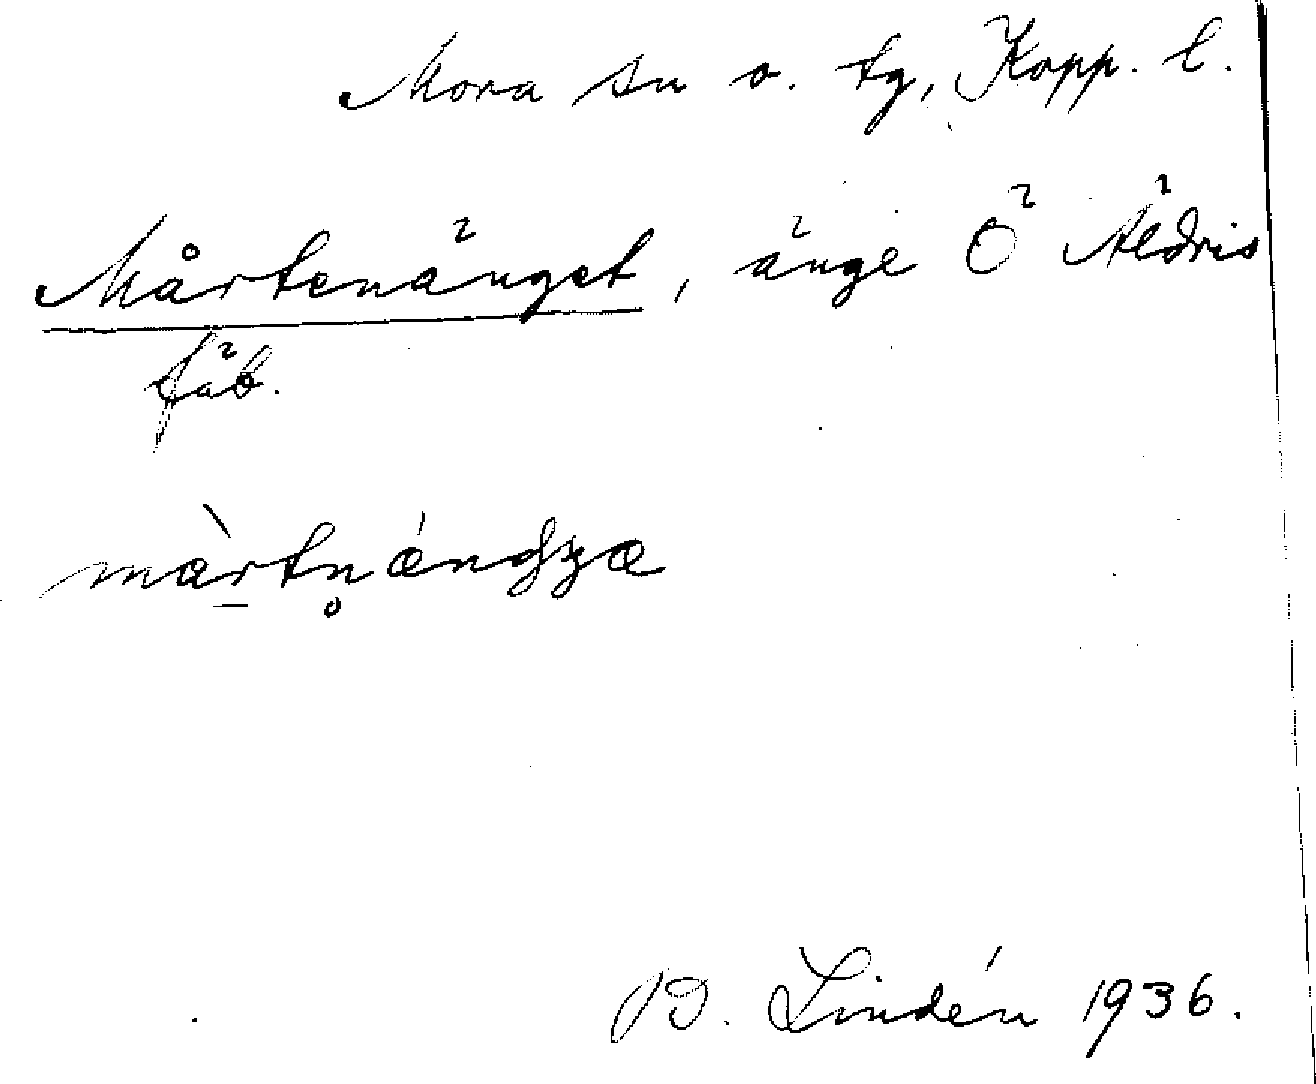 Mora sn o. tg, Kopp. l.
Mårtenänget, änge Ö Äldris
fäb.
màrtn̥ǽndʒæ
B. Lindén 1936.